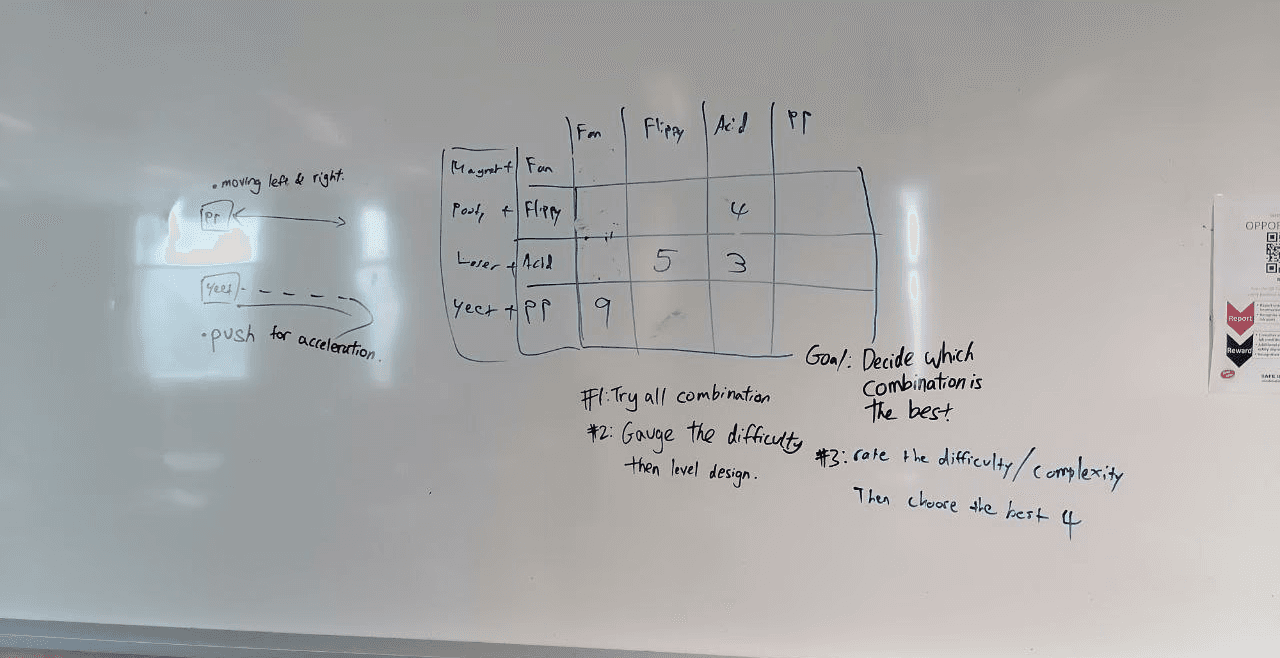 • moving left & right.
PP
Yeet
• push for acceleration.
Fan Flippy Acid PP
Magnet + Fan
+ Flippy 4
Laser + Acid 5 3
Yeet + PP 9
Goal: Decide which
combination is
the best.
#1: Try all combination
#2: Gauge the difficulty
then level design.
#3: rate the difficulty/complexity
Then choose the best 4
OPPOR
Report
Reward